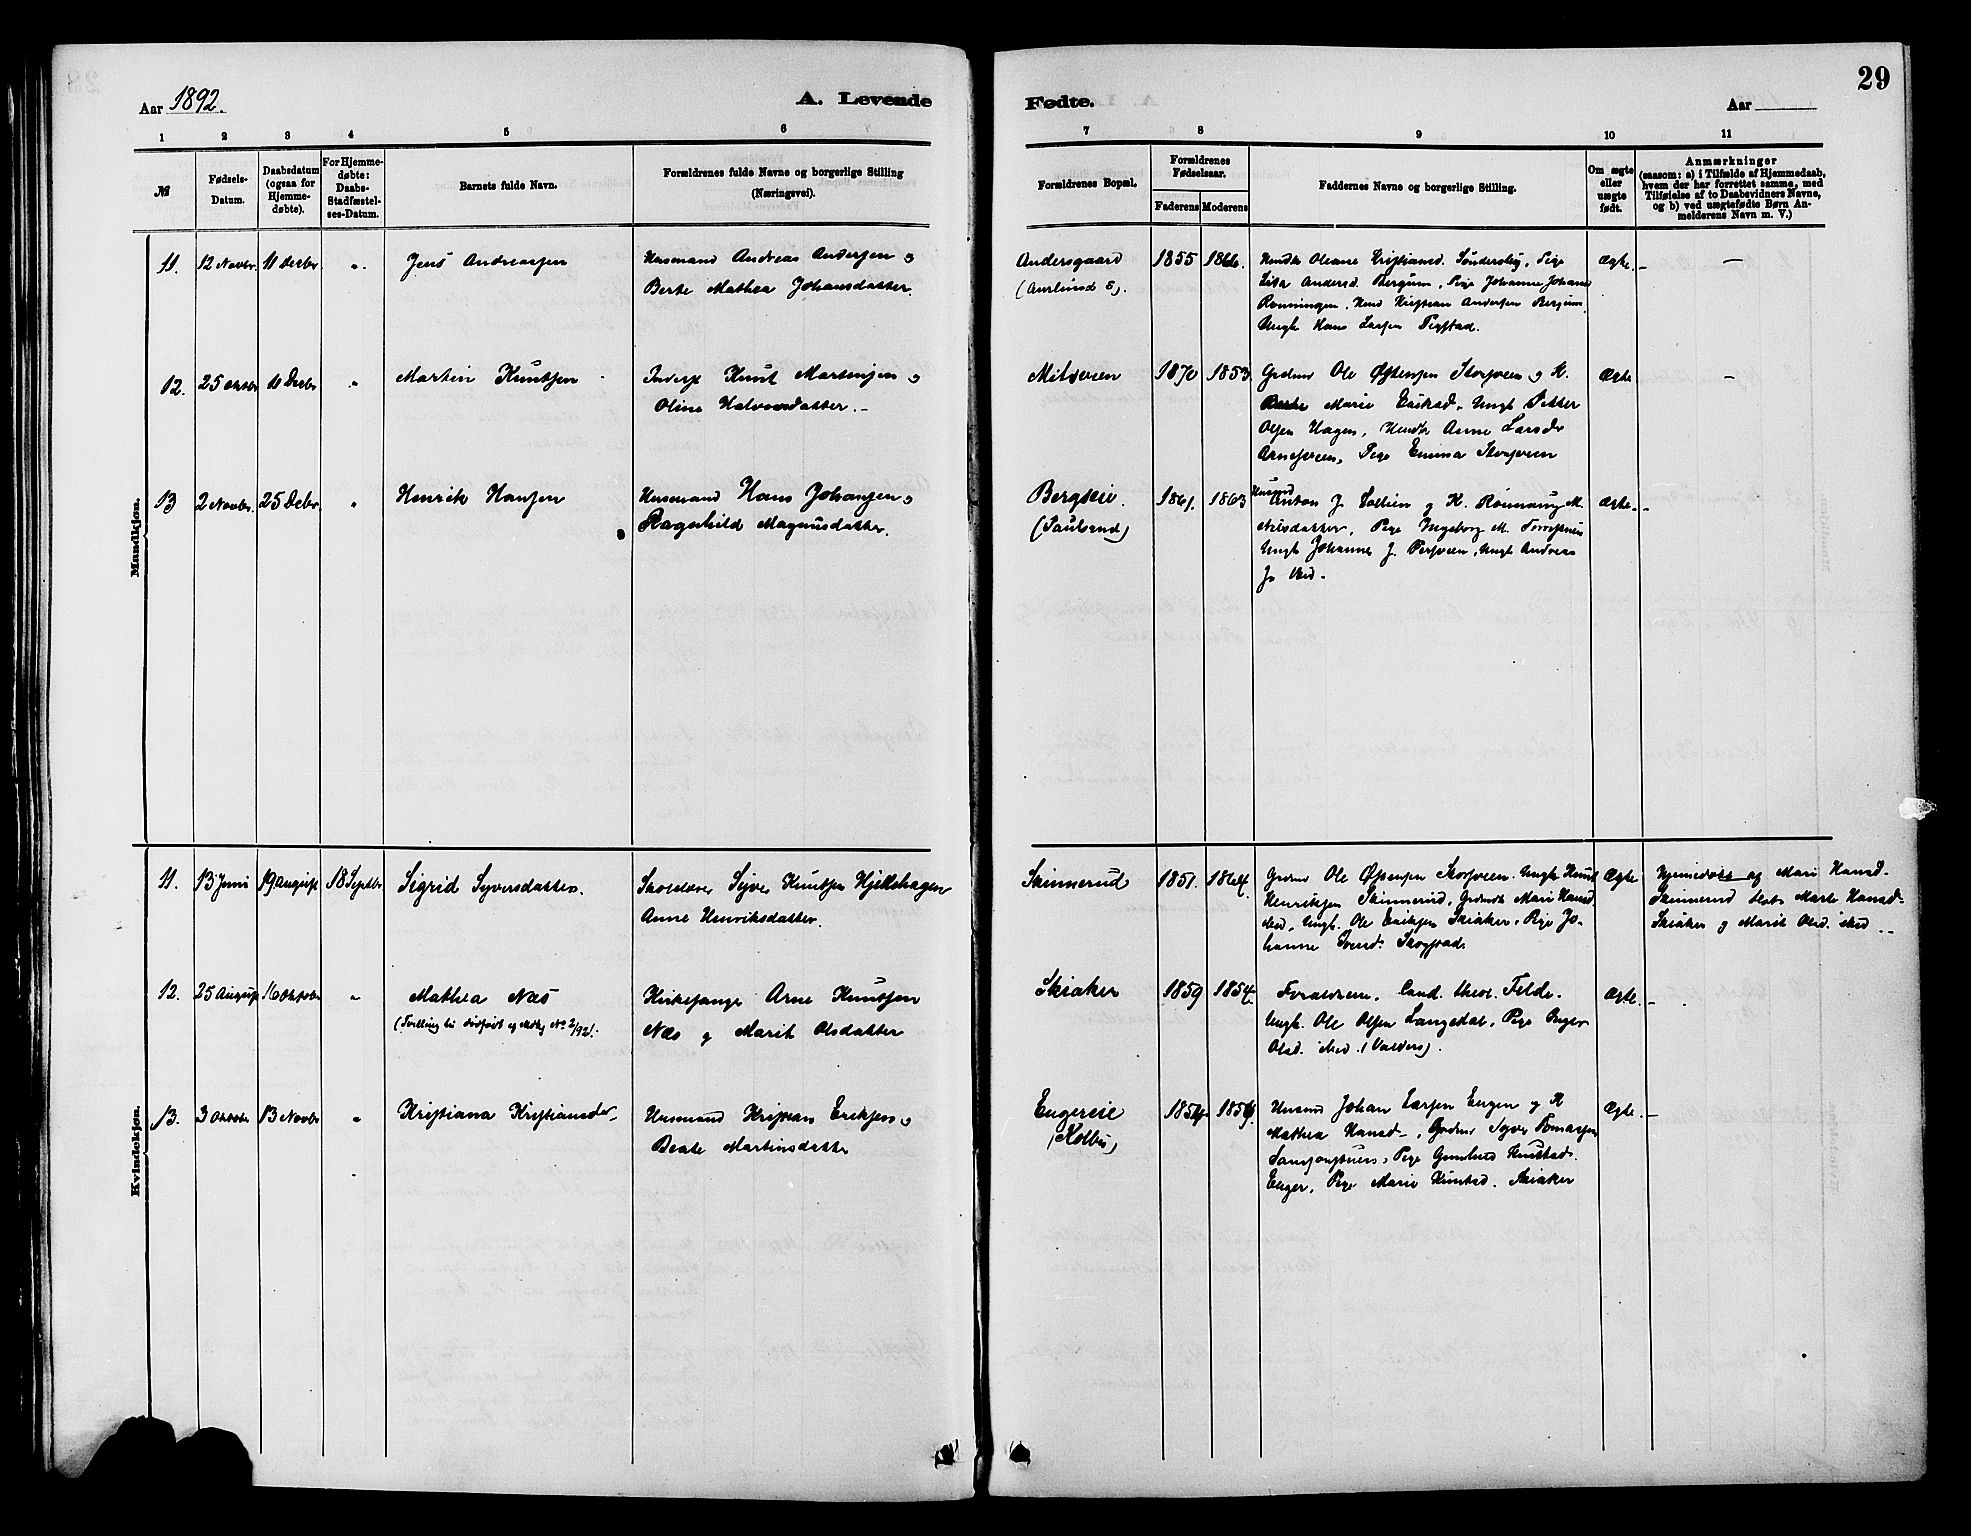 29
Aar 1892.
A. Levende
Fødte.
Aar
1 2 3 4 5 6 7 8 9 10 11
№
Fødsels-
Datum.
Daabsdatum
(ogsaa for
Hjemme-
døbte).
For Hjemme-
døbte:
Daabs-
Stadfæstel-
ses-Datum.
Barnets fulde Navn.
Forældrenes fulde Navne og borgerlige Stilling
(Næringsvei).
Forældrenes Bopæl.
Forældrenes
Fødselsaar.
Faderens Moderens
Faddernes Navne og borgerlige Stilling.
Om ægte
eller
uægte
født.
Anmærkninger
(saasom: a) i Tilfælde af Hjemmedaab,
hvem der har forrettet samme, med
Tilføielse af to Daabsvidners Navne,
og b) ved uægtefødte Børn An-
melderens Navn m. V.)
Mandkjøn.
11. 12 Novbr. 11 Decbr „ Jens Andreassen
Husmand Andreas Andersen og
Berte Mathea Johansdatter.
Andersgaard
1855 1866.
Oleane Kristiansd.
Lisa Andersd. Bergum, Pige Johanne Johans
Rønningen, Kristian Andersen Bergum
Ungk Hans Larsen
Ægte. —
12. 25 Oktbr 11 Decbr „ Martin Knutsen
Inderst Knut Martinsen og
Oline Halvorsdatter. –
1870 1853.
Grdmd Ole Østensen Storsveen og K.
Marie Ungk Petter
Olsen Hagen, Anne Larsdr
Arnesveen, Pige Emma Storsveen
Ægte —
13 2 Novbr. 25 Debr „ Henrik Hansen
Husmand Hans Johansen og
Ragnhild Magnusdatter.
Bergseie.
(Paulsrud)
1861. 1863
Husmd
Anton J. og K. Rønnaug M.
Nilsdatter, Pige Ingeborg M.
Ungk Johannes J. Persveen, Ungk Andreas
J.
Ægte. –
Kvindekjøn.
11. 13 Juni 19 August 18 Septbr Sigrid Syversdatter.
Skolelærer Syver Knutsen Hjellehagen
Anne Henriksdatter.
Skinnerud
1851. 1864.
Grdmd Ole Østensen Storsveen. Ungk Knud
Henriksen Skinnerud, Mari Hansd.
ibid, Ungk. Ole Eriksen Skiaker, Pige Jo-
hanne
Ægte
Hjemmedøbt af Mari Hansd.
Skinnerud Marte Hansd.
Skiaker og Marit Olsd. ibid. –
12. 25 August 16 Oktobr „ Mathea Næs
(Tvilling til dødfødt No 2/92).
Kirkesanger Arne Knutsen
Næs og Marit Olsdatter
Skiaker
1859 1854.
Forældrene, Cand. theol. Felde.
Ungk. Ole Olsen Langedal, Pige Inger
Olsd. ibid. (Valders).
Ægte. –
13. 3 Oktobr 13 Novbr „ Kristiana Kristiansdr
Husmand Kristian Eriksen og
Beate Martinsdatter
Engereie
(Kolbu)
Husmd Johan Larsen Engen og K
Mathea Hansd., Grdmd Syver Tomassen
Pige Knutsd.
Enger, Pige Marie Knutsd. Skiaker
Ægte. –